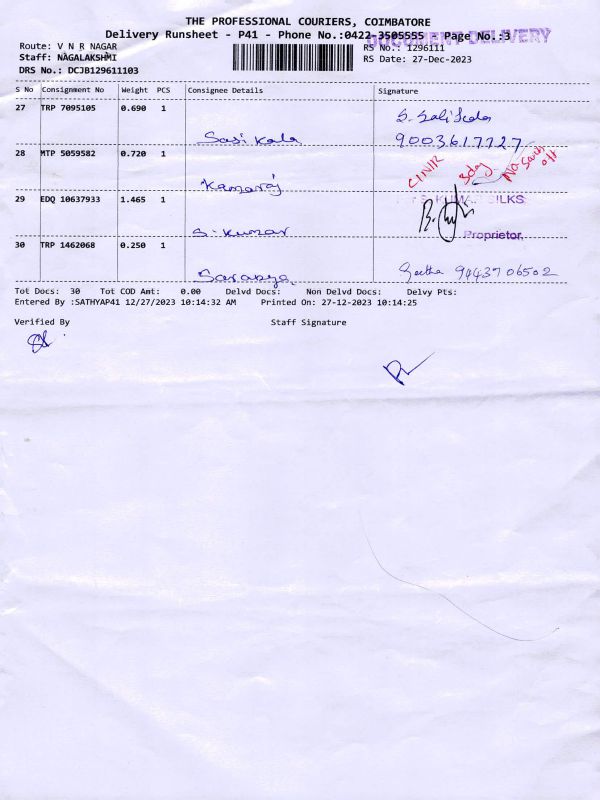 THE PROFESSIONAL COURIERS, COIMBATORE
Delivery Runsheet - P41 - Phone No.:0422-3505555 Page No.:3
DOCUMENT DELIVERY
Route: V N R NAGAR
RS No.: 1296111
Staff: NAGALAKSHMI
RS Date: 27-Dec-2023
DRS No.: DCJB129611103
S No Consignment No Weight PCS Consignee Details Signature
27 TRP 7095105 0.690 1
Sasi kala
9003617727
28 MTP 5059582 0.720 1
Kamaraj
29 EDQ 10637933 1.465 1
KUMAR SILKS
S. kumar
Proprietor
30 TRP 1462068 0.250 1
Saranya
Geetha 9443706502
Tot Docs: 30 Tot COD Amt: 0.00 Delvd Docs: Non Delvd Docs: Delvy Pts:
Entered By :SATHYAP41 12/27/2023 10:14:32 AM Printed On: 27-12-2023 10:14:25
Verified By Staff Signature